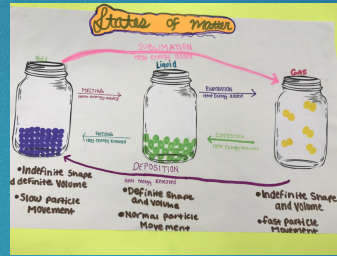 States of matter
SUBLIMATION
Heat Energy added
Solid
Liquid
GAS
MELTING
Heat Energy Added
EVAPORATION
Heat Energy added
Heat Energy Removed
Heat Energy Removed
DEPOSITION
Heat Energy Removed
•Indefinite Shape
definite Volume
•Slow particle
Movement
•Definite Shape
and volume
•Normal particle
Movement
•Indefinite Shape
and Volume
•fast particle
Movement